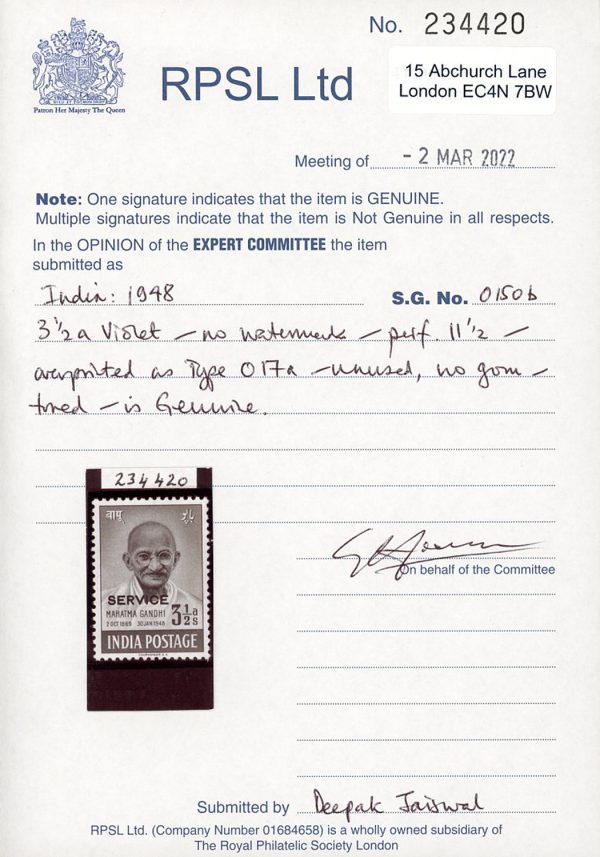 No. 234420
15 Abchurch Lane
London EC4N 7BW
RPSL Ltd
DIEU ET MON DROIT
Patron Her Majesty The Queen
Meeting of - 2 MAR 2022
Note: One signature indicates that the item is GENUINE.
Multiple signatures indicate that the item is Not Genuine in all respects.
In the OPINION of the EXPERT COMMITTEE the item
submitted as
India: 1948
S.G. No. O150b
3½a Violet – no watermark – perf. 11½ –
overprinted as Type O17a – unused, no gum –
toned – is Genuine.
234420
बापू بابو
SERVICE
MAHATMA GANDHI
2 OCT 1869 30 JAN 1948
3½ as
INDIA POSTAGE
On behalf of the Committee
Submitted by Deepak Jaiswal
RPSL Ltd. (Company Number 01684658) is a wholly owned subsidiary of
The Royal Philatelic Society London